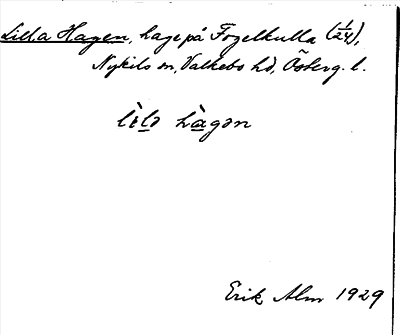 Lilla Hagen, hage på Fogelkulla (1/24),
Nykils sn, Valkebo hd, Österg. l.
lìlə hàgən
Erik Alm 1929